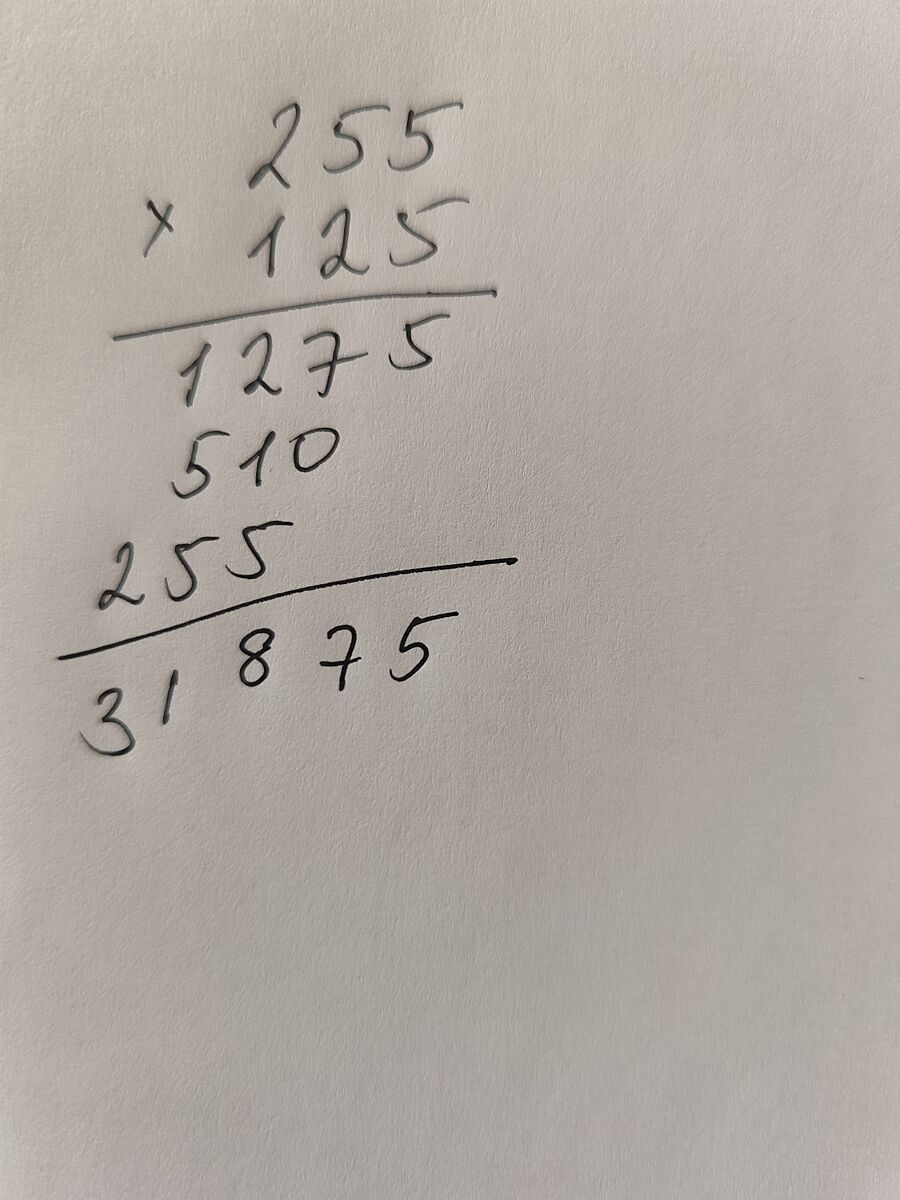 255
x 125
1275
510
255
31875